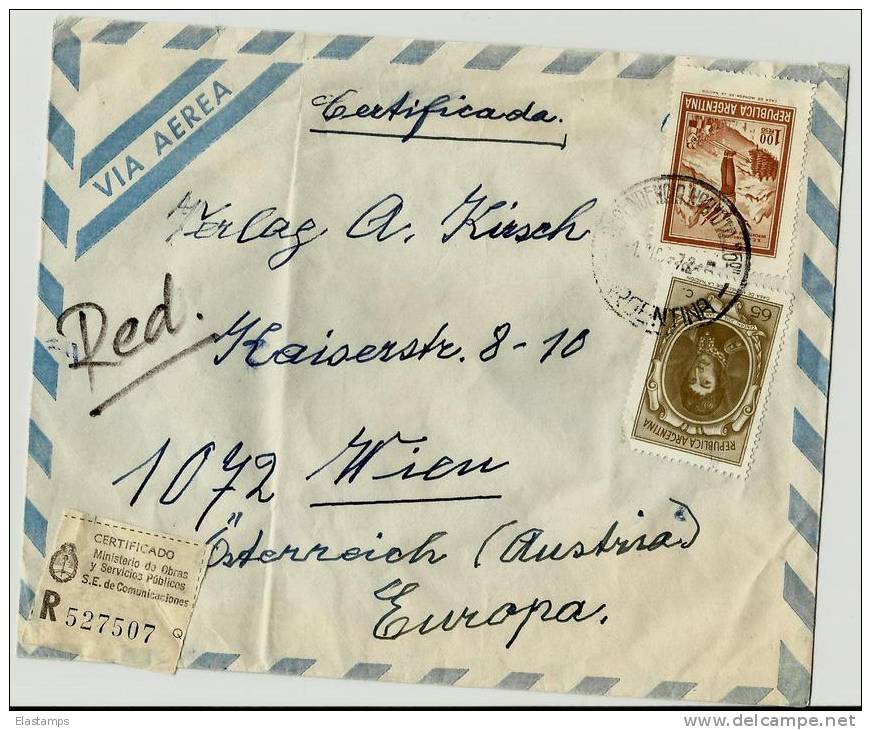 VIA AEREA
Certificada.
Verlag A. Kirsch
Red.
Kaiserstr. 8-10
1072 Wien
Österreich (Austria)
Europa.
1.00
PESO
REPUBLICA ARGENTINA
65
C.
REPUBLICA ARGENTINA
ARGENTINA
CERTIFICADO
Ministerio de Obras
y Servicios Públicos
S.E. de Comunicaciones
R 527507
Elastamps
http://www.delcampe.net